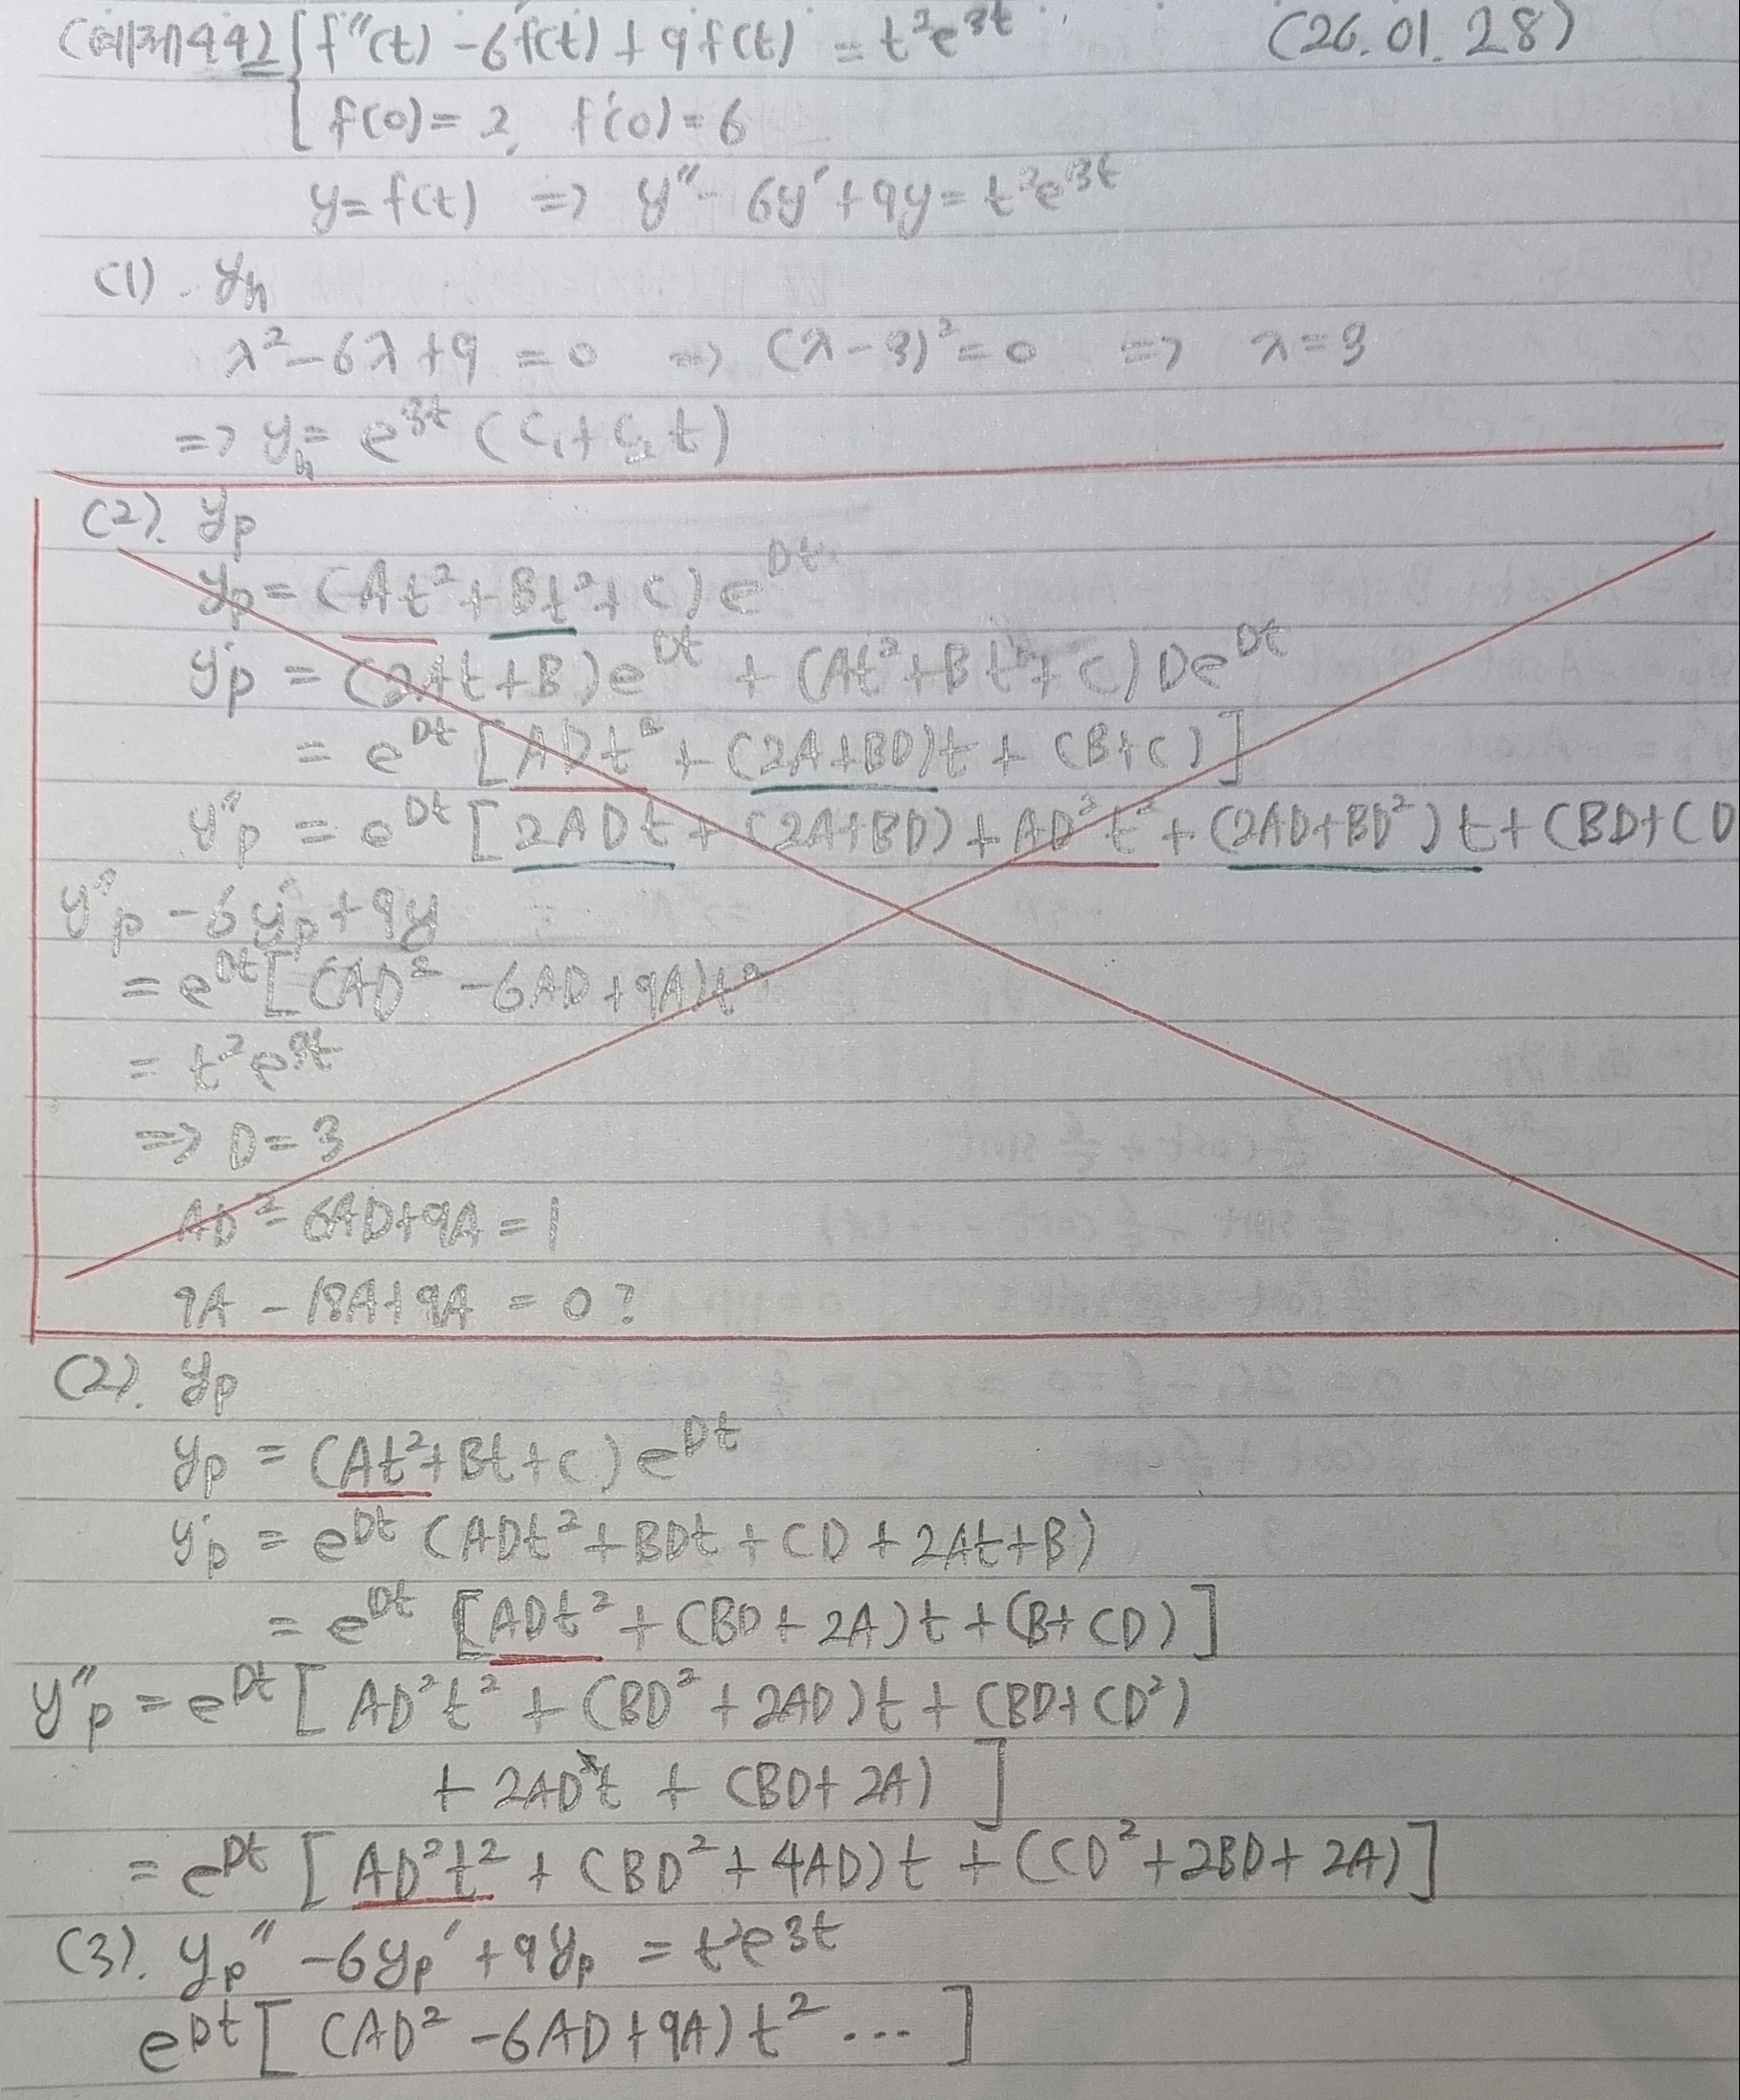 (예제442) { f''(t) - 6f'(t) + 9f(t) = t²e^{3t} (26.01.28)
f(0) = 2, f'(0) = 6
y = f(t) => y'' - 6y' + 9y = t²e^{3t}
(1). y_h
λ² - 6λ + 9 = 0 => (λ - 3)² = 0 => λ = 3
=> y_h = e^{3t} (C₁ + C₂ t)
(2). y_p
y_p = (At² + Bt² + C) e^{Dt}
y'_p = (2At + B) e^{Dt} + (At² + Bt² + C) D e^{Dt}
= e^{Dt} [ADt² + (2A + BD)t + (B + C)]
y''_p = e^{Dt} [2ADt + (2A + BD) + AD²t² + (2AD + BD²)t + (BD + CD
y''_p - 6y'_p + 9y
= e^{Dt} [(AD² - 6AD + 9A)t²
= t²e^{3t}
=> D = 3
AD² - 6AD + 9A = 1
9A - 18A + 9A = 0 ?
(2). y_p
y_p = (At² + Bt + C) e^{Dt}
y'_p = e^{Dt} (ADt² + BDt + CD + 2At + B)
= e^{Dt} [ADt² + (BD + 2A)t + (B + CD)]
y''_p = e^{Dt} [AD²t² + (BD² + 2AD)t + (BD + CD²)
+ 2ADt + (BD + 2A)]
= e^{Dt} [AD²t² + (BD² + 4AD)t + (CD² + 2BD + 2A)]
(3). y_p'' - 6y_p' + 9y_p = t²e^{3t}
e^{Dt} [(AD² - 6AD + 9A)t² ... ]